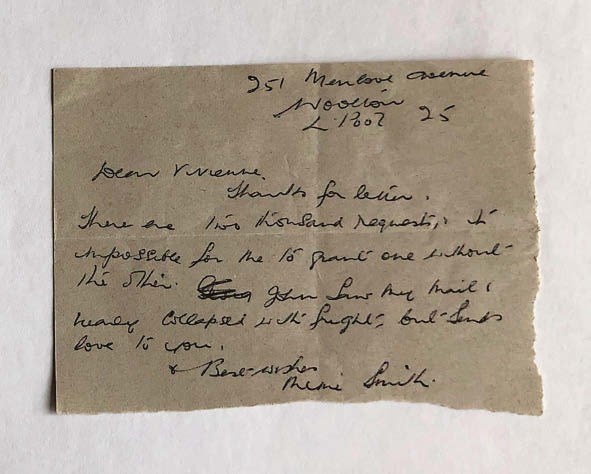 251 Menlove Avenue
Woolton
L. Pool 25
Dear Vivienne.
Thanks for letter.
There are two thousand requests, & it
impossible for me to grant one without
the other. John saw my mail &
nearly collapsed with fright, but sends
love to you.
& Best-wishes
Mimi Smith.